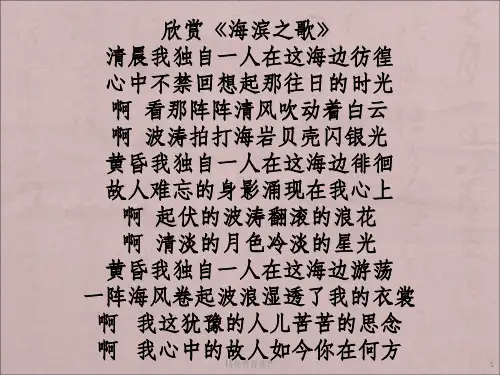 欣赏《海滨之歌》
清晨我独自一人在这海边彷徨
心中不禁回想起那往日的时光
啊 看那阵阵清风吹动着白云
啊 波涛拍打海岩贝壳闪银光
黄昏我独自一人在这海边徘徊
故人难忘的身影涌现在我心上
啊 起伏的波涛翻滚的浪花
啊 清淡的月色冷淡的星光
黄昏我独自一人在这海边游荡
一阵海风卷起波浪湿透了我的衣裳
啊 我这犹豫的人儿苦苦的思念
啊 我心中的故人如今你在何方
1